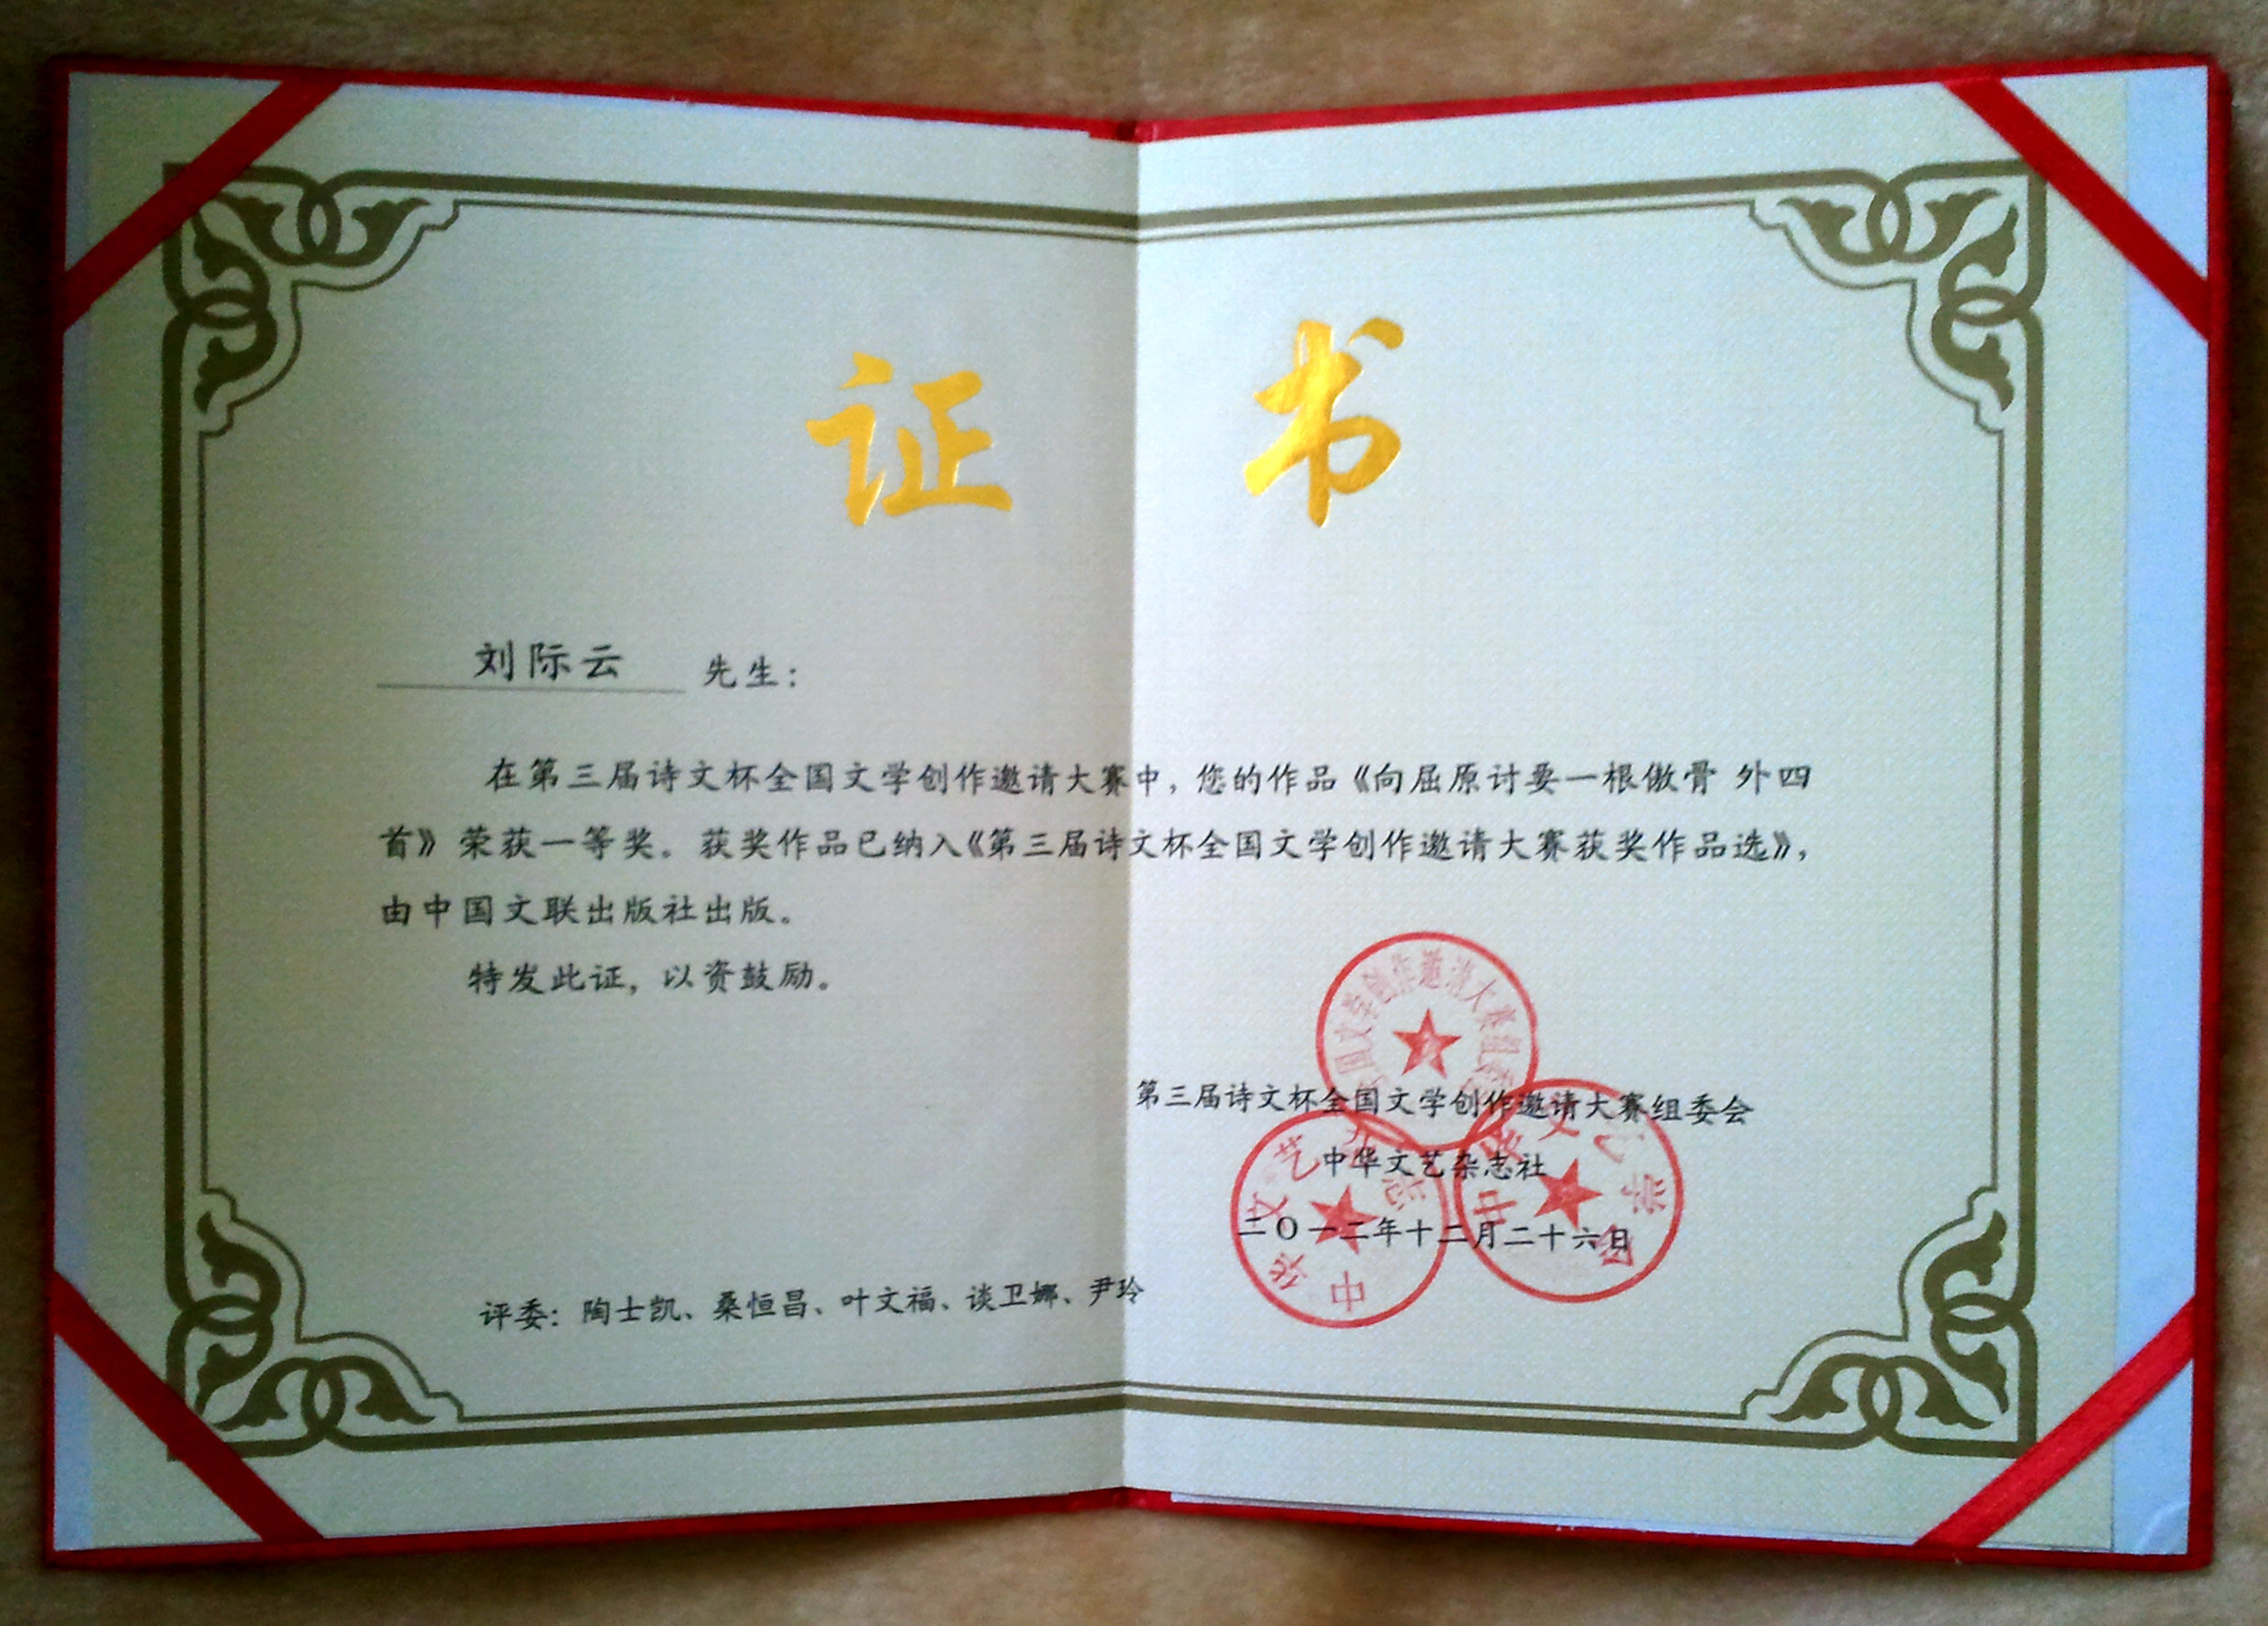 证书
刘际云 先生：
在第三届诗文杯全国文学创作邀请大赛中，您的作品《向屈原讨要一根傲骨 外四
首》荣获一等奖。获奖作品已纳入《第三届诗文杯全国文学创作邀请大赛获奖作品选》，
由中国文联出版社出版。
特发此证，以资鼓励。
第三届诗文杯全国文学创作邀请大赛组委会
中华文艺杂志社
二〇一二年十二月二十六日
评委：陶士凯、桑恒昌、叶文福、谈卫娜、尹玲